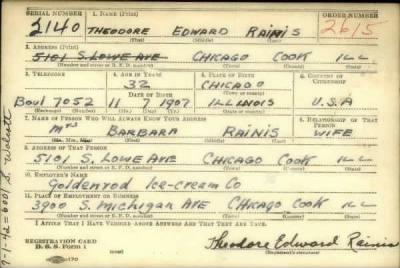 SERIAL NUMBER 1. NAME (Print) ORDER NUMBER
2140 THEODORE EDWARD RAINIS 2615
(First) (Middle) (Last)
2. ADDRESS (Print)
5101 S. LOWE AVE CHICAGO COOK ILL
(Number and street or R. F. D. number) (Town) (County) (State)
3. TELEPHONE 4. AGE IN YEARS 5. PLACE OF BIRTH 6. COUNTRY OF CITIZENSHIP
32 CHICAGO
DATE OF BIRTH
Boul 7052 11 7 1907 ILLINOIS U.S.A
(Exchange) (Number) (Mo.) (Day) (Yr.) (State or country)
7. NAME OF PERSON WHO WILL ALWAYS KNOW YOUR ADDRESS 8. RELATIONSHIP OF THAT PERSON
Mrs BARBARA RAINIS WIFE
(Mr., Mrs., Miss) (First) (Middle) (Last)
9. ADDRESS OF THAT PERSON
5101 S. LOWE AVE CHICAGO COOK ILL
(Number and street or R. F. D. number) (Town) (County) (State)
10. EMPLOYER'S NAME
Goldenrod Ice-cream Co
11. PLACE OF EMPLOYMENT OR BUSINESS
3900 S. Michigan AVE CHICAGO COOK ILL
(Number and street or R. F. D. number) (Town) (County) (State)
I AFFIRM THAT I HAVE VERIFIED ABOVE ANSWERS AND THAT THEY ARE TRUE.
REGISTRATION CARD
D. S. S. Form 1 Theodore Edward Rainis
(Registrant's signature)
7-1-42-6001 S.